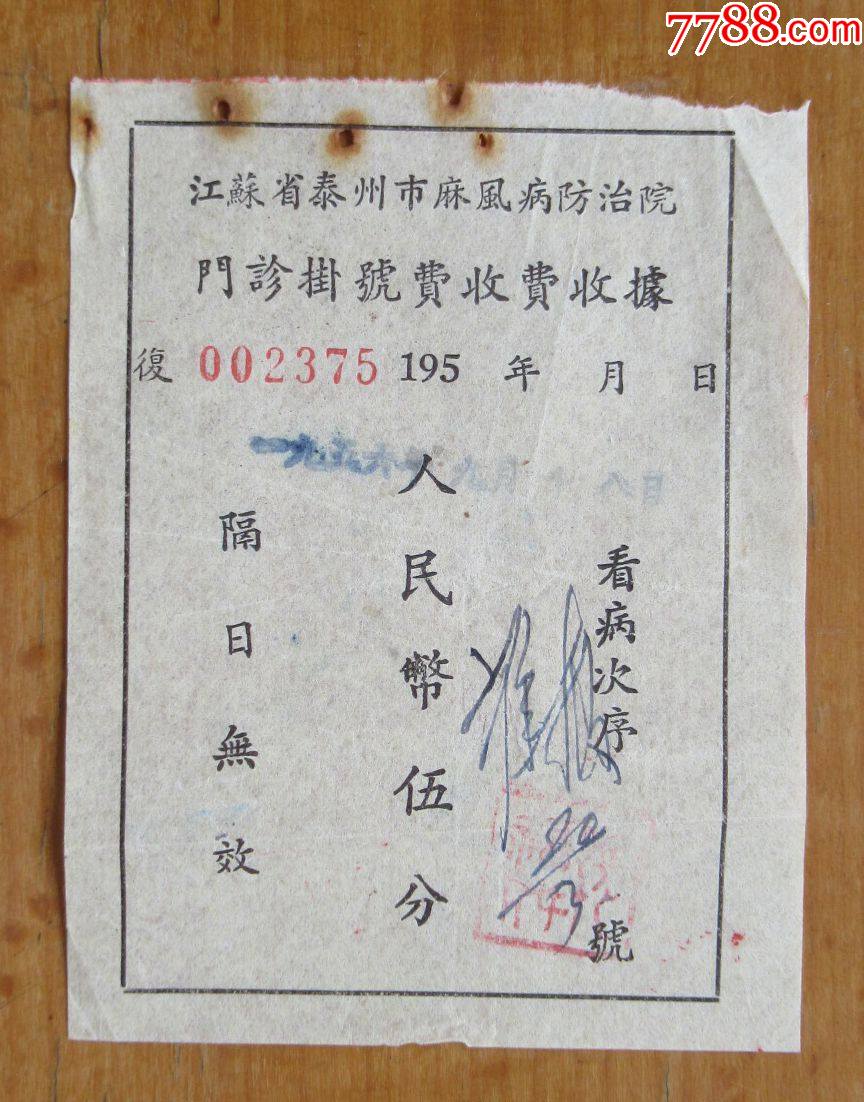 7788.com
江蘇省泰州市麻風病防治院
門診掛號費收費收據
復 002375 195 年 月 日
一九五六年 九月 十八日
看病次序
號
人民幣伍分
隔日無效